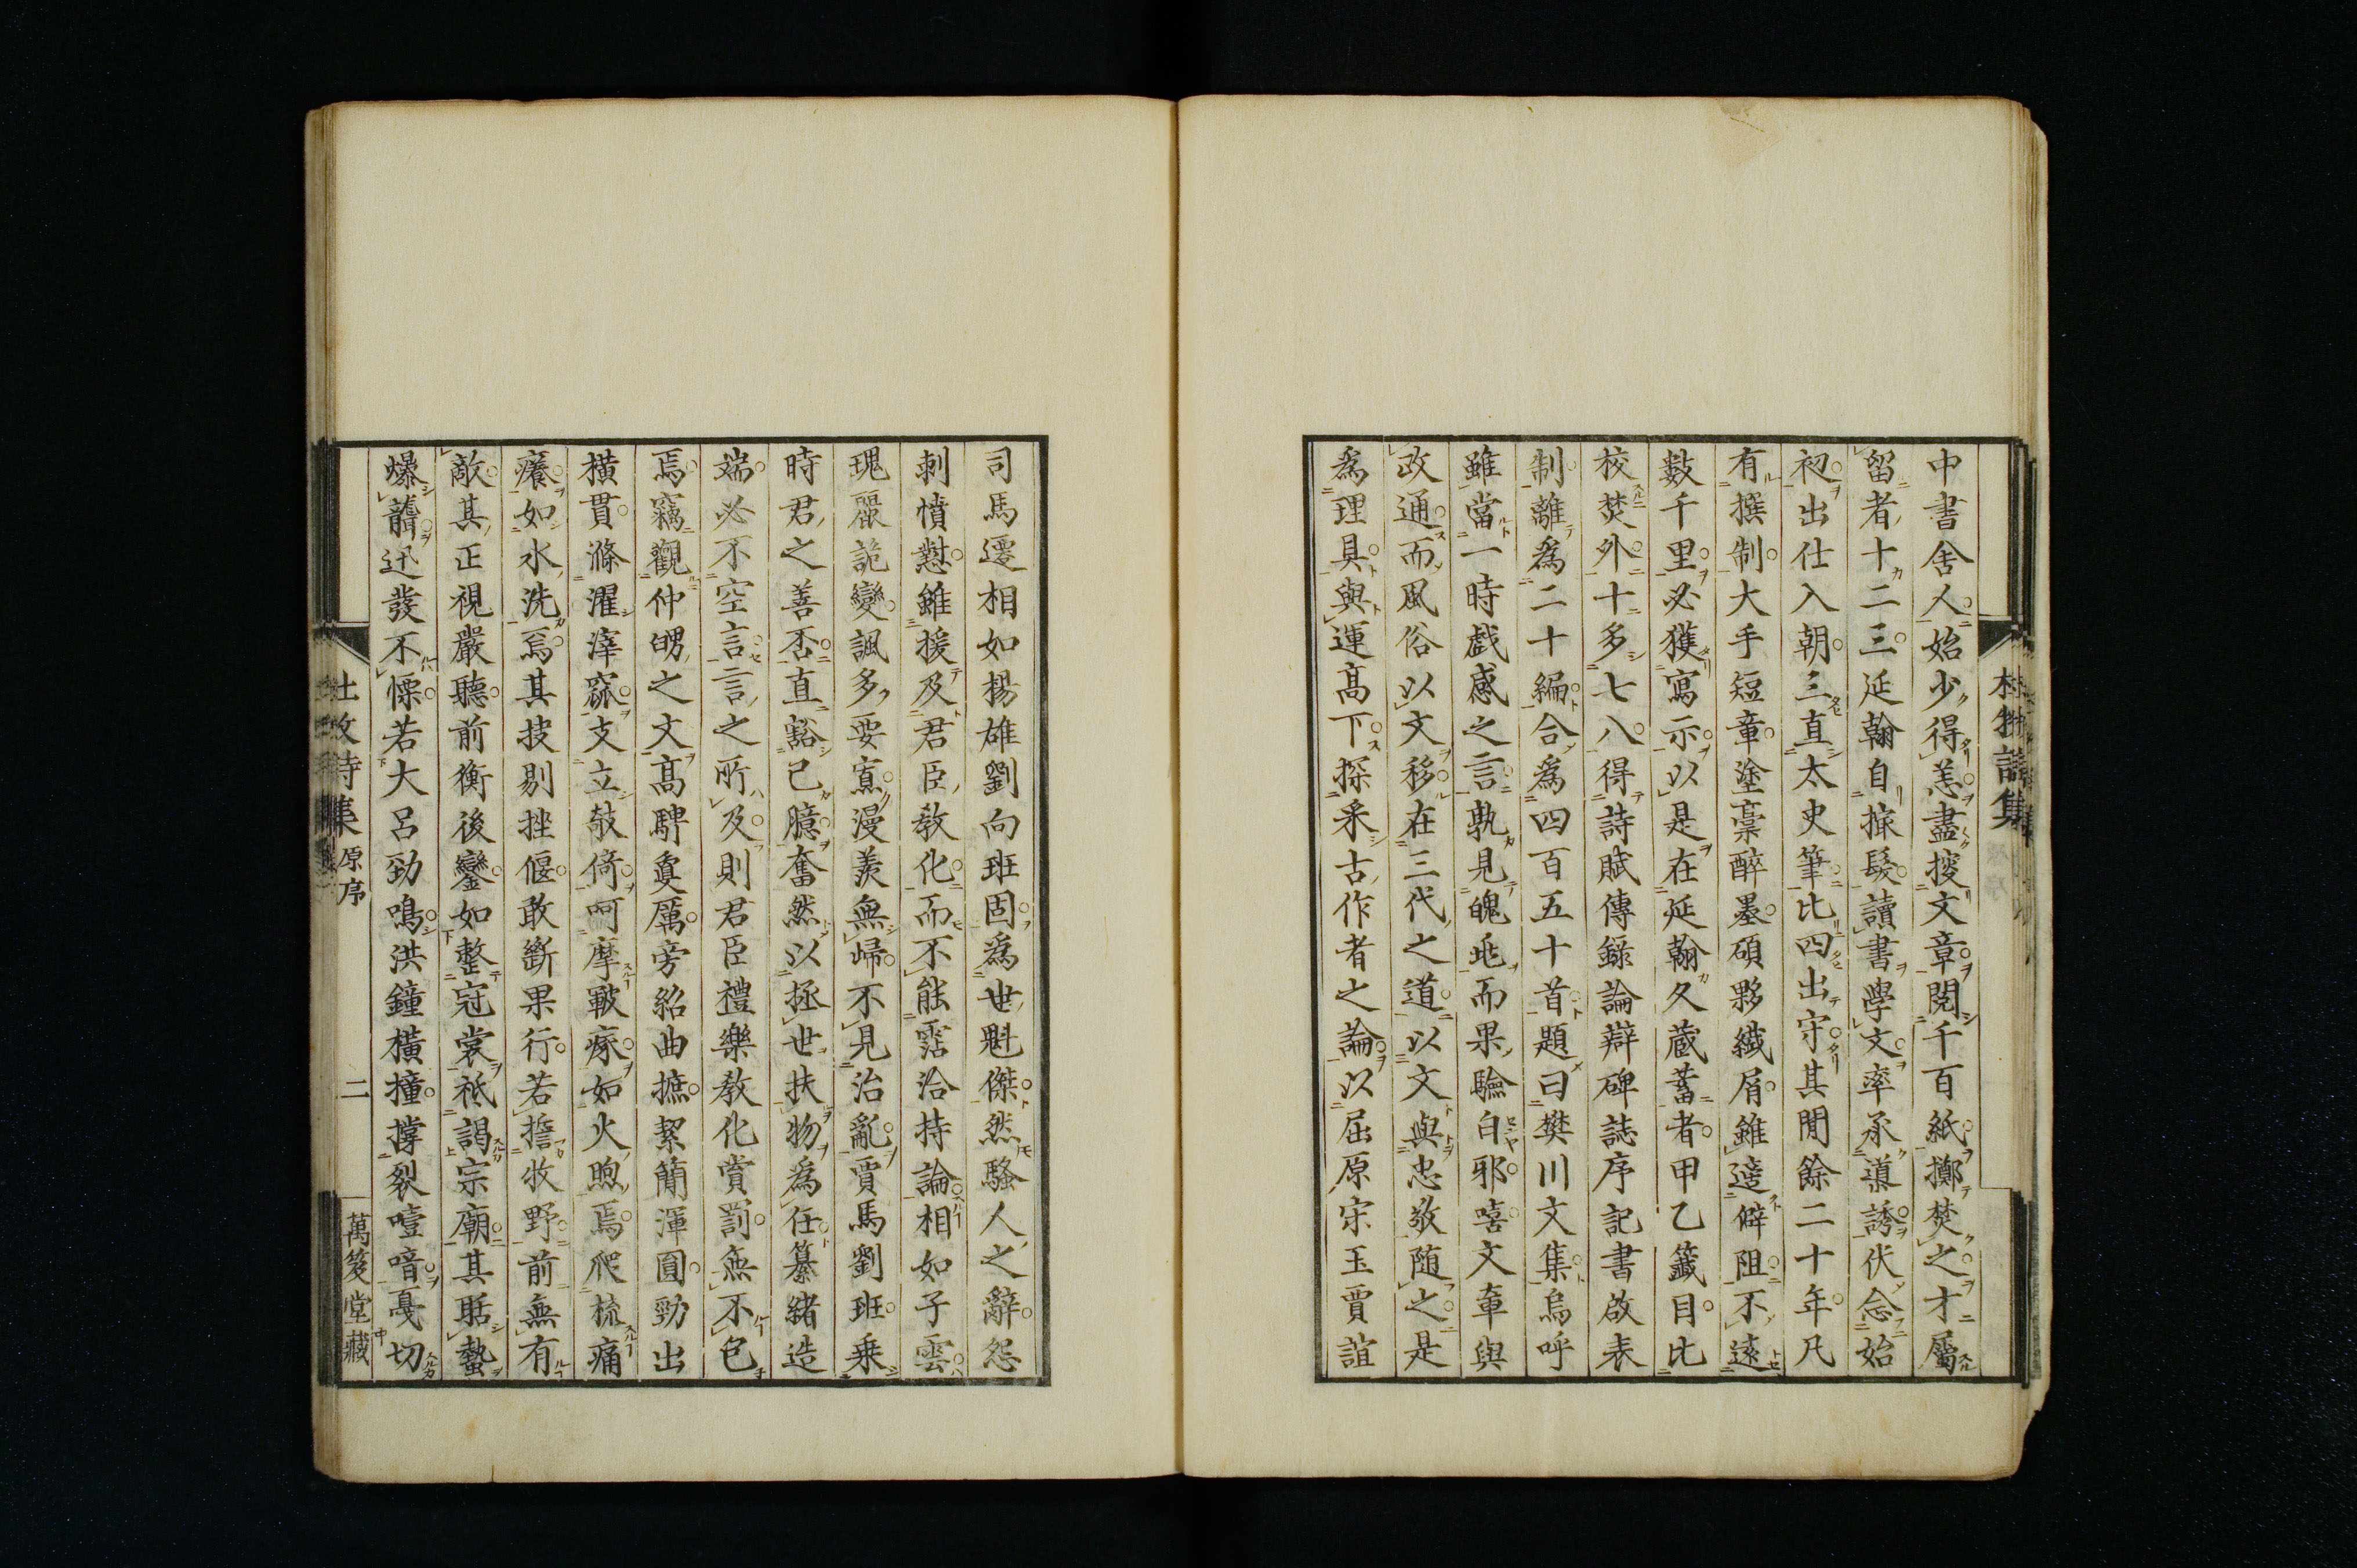 中書舍人始少得恙盡搜文章閱千百紙擲焚之才屬
留者十二三延翰自撮髮讀書學文率承導誘伏念始
初出仕入朝三直太史筆比四出守其閒餘二十年凡
有撰制大手短章塗稾醉墨碩夥纖屑雖適僻阻不遠
數千里必獲寫示以是在延翰久蔵蓄者甲乙籤目比
校焚外十多七八得詩賦傳錄論辯碑誌序記書啟表
制離為二十編合為四百五十首題曰樊川文集烏呼
雖當一時戲感之言孰見魄兆而果驗白邪嘻文章與
政通而風俗以文移在三代之道以文與忠敬随之是
為理具與運髙下採采古作者之論以屈原宋玉賈誼
司馬遷相如揚雄劉向班固為世魁傑然騷人之辭怨
刺憤懟雖援及君臣敎化而不能霑洽持論相如子雲
瑰麗詭變諷多要寡漫羨無歸不見治亂賈馬劉班乗
時君之善否直豁己臆奮然以拯世扶物為任纂緒造
端必不空言言之所及則君臣禮樂敎化賞罰無不包
焉竊觀仲舅之文髙騁敻厲旁紹曲摭絜簡渾圓勁出
橫貫滌濯滓窳支立敧倚呵摩皸瘃如火煦焉爬梳痛
癢如水洗焉其抉剔挫偃敢斷果行若誓牧野前無有
敵其正視嚴聽前衡後鑾如整冠裳祗謁宗廟其聒蟄
爆聾迅發不慄若大呂勁鳴洪鐘橫撞撐裂噎喑戛切
杜牧詩集 原序
二
萬笈堂藏